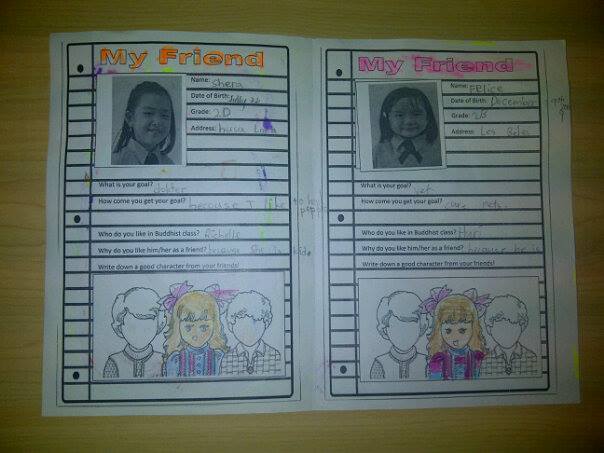 My Friend
Name: Shera
Date of Birth: July 24
Grade: 2D
Address:
What is your goal? dokter
How come you get your goal? because I like to help people
Who do you like in Buddhist class? Richelle
Why do you like him/her as a friend? because she is kide
Write down a good character from your friends!
My Friend
Name: FELice
Date of Birth: December
Grade: 2B
Address: Les Beles
What is your goal? vet
How come you get your goal? care pets.
Who do you like in Buddhist class?
Why do you like him/her as a friend? because he is
Write down a good character from your friends!